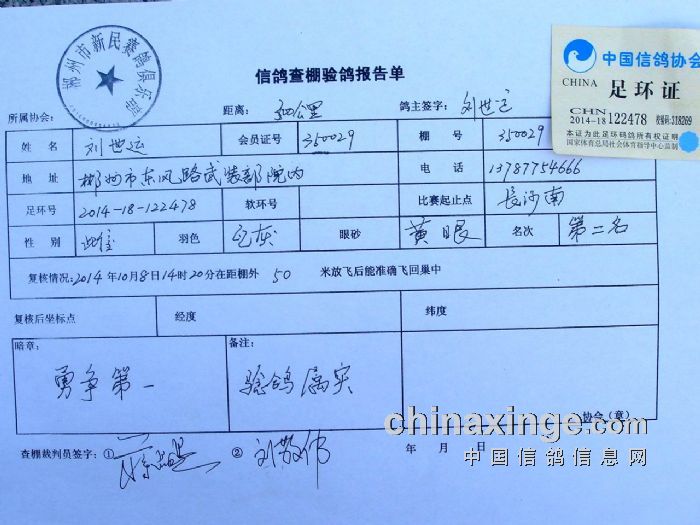 郴州市新民赛鸽俱乐部
中国信鸽协会
CHINA 足环证
CHN
2014-18 122478 校验码:318269
本证为此足环码鸽所有权证明
国家体育总局社会体育指导中心监制
信鸽查棚验鸽报告单
所属协会: 距离: 300公里 鸽主签字: 刘世运
姓 名 刘世运 会员证号 350029 棚 号 350029
地 址 郴州市东风路武装部院内 电 话 13787754666
足环号 2014-18-122478 软环号 比赛起止点 长沙南
性 别 雌 羽色 灰 眼砂 黄眼 名次 第二名
复核情况:2014年10月8日14时20分在距棚外 50 米放飞后能准确飞回巢中
复核后坐标点 经度 纬度
暗章: 备注:
勇争第一 验鸽属实
协会(章)
查棚裁判员签字:① ② 刘敬伟 年 月 日
chinaxinge.com
中国信鸽信息网